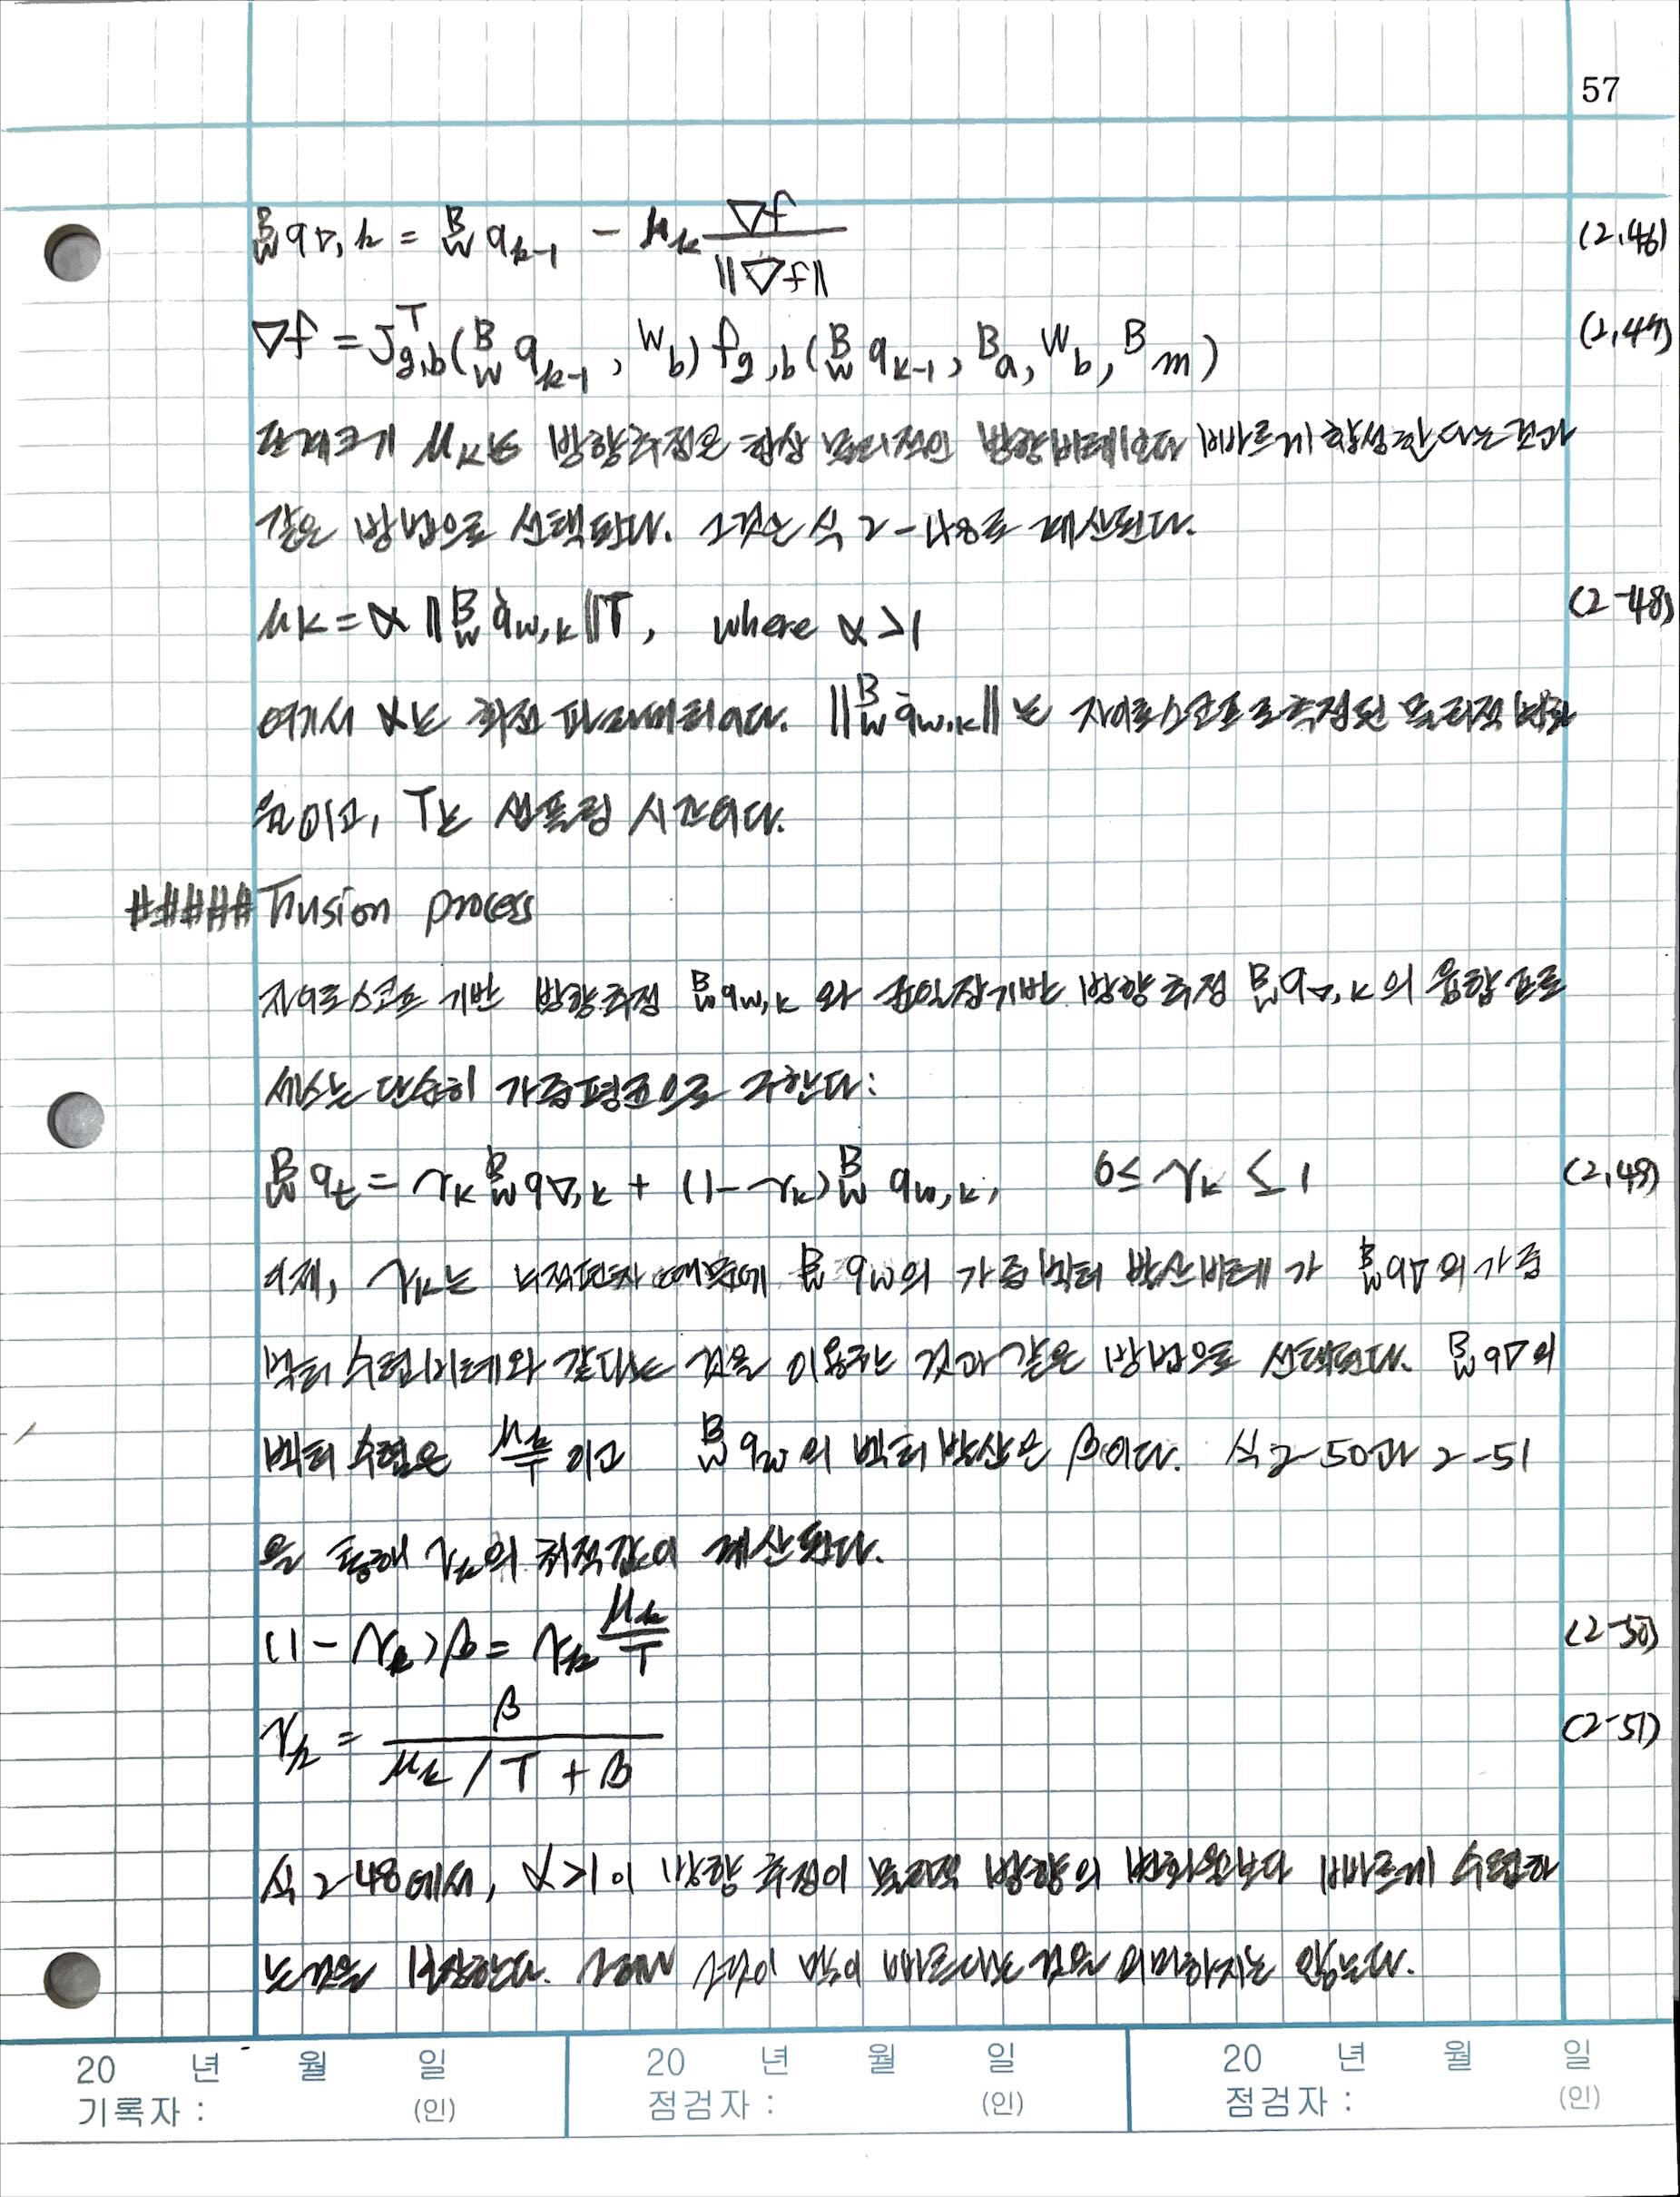 57
ᴮ_W q∇,k = ᴮ_W q_{k-1} − μ_k ∇f / ‖∇f‖ (2,46)
∇f = J^T_{g,b}(ᴮ_W q_{k-1}, ᵂb) f_{g,b}(ᴮ_W q_{k-1}, ᴮa, ᵂb, ᴮm) (2,47)
단계크기 μ_k는 방향추정은 항상 물리적인 방향비례보다 빠르게 형성한다는 것과
같은 방법으로 선택된다. 그것은 식 2-48로 계산된다.
μ_k = α ‖ᴮ_W q̇_{w,k}‖T, where α > 1 (2-48)
여기서 α는 확장 파라미터이다. ‖ᴮ_W q̇_{w,k}‖는 자이로스코프로 측정된 물리적 방향
율이고, T는 샘플링 시간이다.
##### Fusion process
자이로스코프 기반 방향추정 ᴮ_W q_{w,k} 와 기반 방향 추정 ᴮ_W q_{∇,k}의 융합 프로
세스는 단순히 가중평균으로 구한다:
ᴮ_W q_t = γ_k ᴮ_W q_{∇,k} + (1−γ_k) ᴮ_W q_{w,k}, 0 ≤ γ_k ≤ 1 (2,49)
이제, γ_k는 때문에 ᴮ_W q_w의 가중벡터 발산비례가 ᴮ_W q∇의 가중
벡터 수렴비례와 같다는 것을 이용하는 것과 같은 방법으로 선택된다. ᴮ_W q∇의
벡터 수렴은 μ_k/T 이고 ᴮ_W q_w의 벡터 발산은 β이다. 식 2-50과 2-51
을 통해 γ_k의 최적값이 계산된다.
(1−γ_k)β = γ_k μ_k/T (2-50)
γ_k = β / (μ_k / T + β) (2-51)
식 2-48에서, α>1이 방향 추정이 물리적 방향의 변화율보다 빠르게 수렴하
는 것을 보장한다. 그것이 빠르다는 것을 의미하지는 않는다.
20 년 월 일 20 년 월 일 20 년 월 일
기록자 : (인) 점검자 : (인) 점검자 : (인)